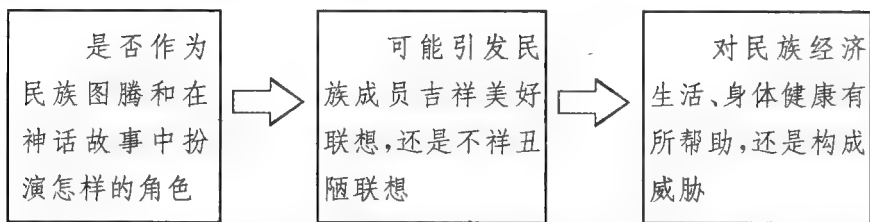 是否作为
民族图腾和在
神话故事中扮
演怎样的角色
可能引发民
族成员吉祥美好
联想,还是不祥丑
陋联想
对民族经济
生活、身体健康有
所帮助,还是构成
威胁